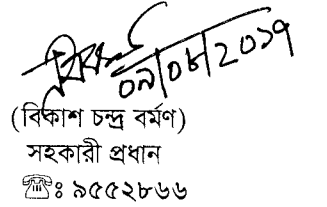 ০৯/০৮/২০১৭
(বিকাশ চন্দ্র বর্মণ)
সহকারী প্রধান
☎ঃ ৯৫৫২৮৬৬